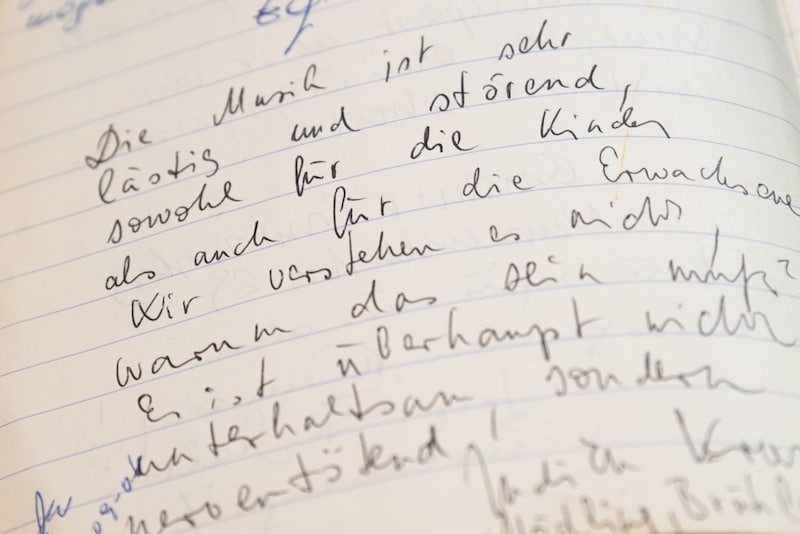 Die Musik ist sehr
lästig und störend,
sowohl für die Kinder
als auch für die Erwachsene
Wir verstehen es nicht,
warum das sein muß?
Es ist überhaupt nicht
unterhaltsam, sondern
nervertötend!